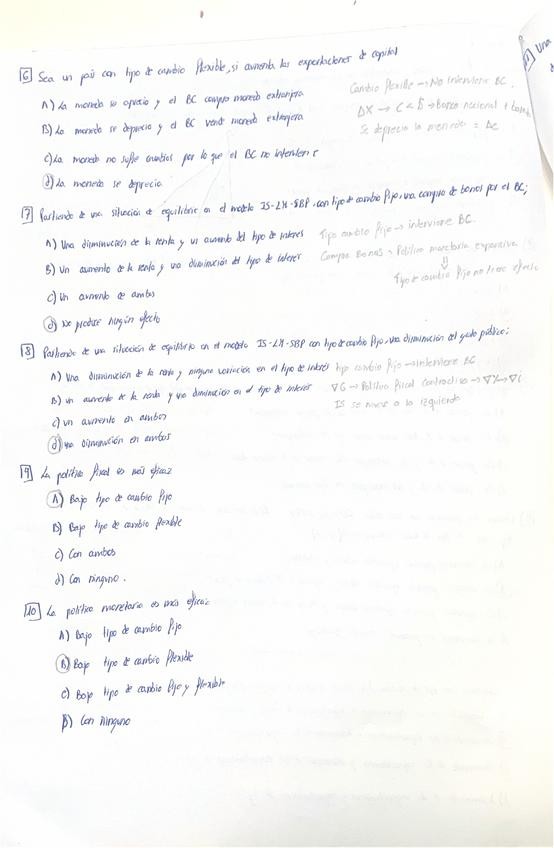 6 Sea un país con tipo de cambio flexible, si aumenta las exportaciones de capital
A) La moneda se aprecia y el BC compra moneda extranjera
B) La moneda se deprecia y el BC vende moneda extranjera
c) La moneda no sufre cambios por lo que el BC no interviene
d) La moneda se deprecia
Cambio flexible → No interviene BC.
ΔX →
Se deprecia la moneda =
7 Partiendo de una situación de equilibrio en el modelo IS-LM-SBP, con tipo de cambio fijo, una compra de bonos por el BC;
A) Una disminución de la renta y un aumento del tipo de interés
B) Un aumento de la renta y una disminución del tipo de interés
c) Un aumento de ambos
d) No produce ningún efecto
Tipo cambio fijo → interviene BC.
Compra Bonos → Política monetaria expansiva
⇓
Tipo de cambio fijo no tiene efecto
8 Partiendo de una situación de equilibrio en el modelo IS-LM-SBP con tipo de cambio fijo, una disminución del gasto público;
A) Una disminución de la renta y ninguna variación en el tipo de interés
B) un aumento de la renta y una disminución en el tipo de interés
c) un aumento en ambos
d) una disminución en ambos
tipo cambio fijo → Interviene BC
∇G → Política fiscal contractiva → ∇Y → ∇i
IS se mueve a la izquierda
9 La política fiscal es más eficaz
A) Bajo tipo de cambio fijo
B) Bajo tipo de cambio flexible
c) Con ambos
d) Con ninguno.
10 La política monetaria es más eficaz
A) Bajo tipo de cambio fijo
B) Bajo tipo de cambio flexible
c) Bajo tipo de cambio fijo y flexible
D) Con ninguno
Una